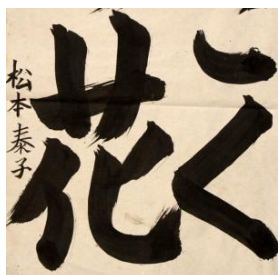 く
花
松本泰子